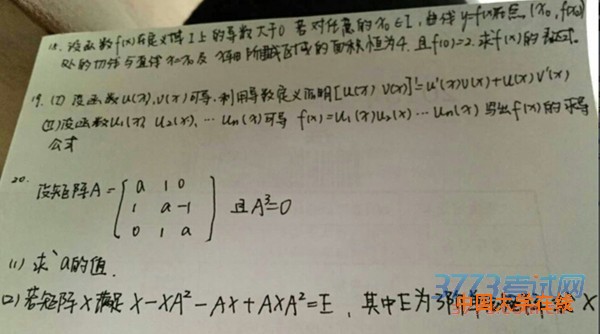 18. 设函数f(x)在定义域I上的导数大于0 若对任意的x₀∈I, 曲线y=f(x)在点(x₀, f(x₀))
处的切线与直线x=x₀及x轴所围成区域的面积恒为4. 且f(0)=2. 求f(x)的表达式.
19. (I) 设函数u(x), v(x)可导. 利用导数定义证明[u(x) v(x)]'=u'(x)v(x)+u(x)v'(x)
(II)设函数u₁(x), u₂(x), … uₙ(x)可导 f(x)=u₁(x)u₂(x)…uₙ(x) 写出f(x)的求导
公式
20.
设矩阵A= ( a 1 0
1 a -1
0 1 a ) 且A³=0
(1) 求a的值.
(2) 若矩阵X满足 X-XA²-AX+AXA²=E, 其中E为3阶 X
3773考试网
中国大学在线